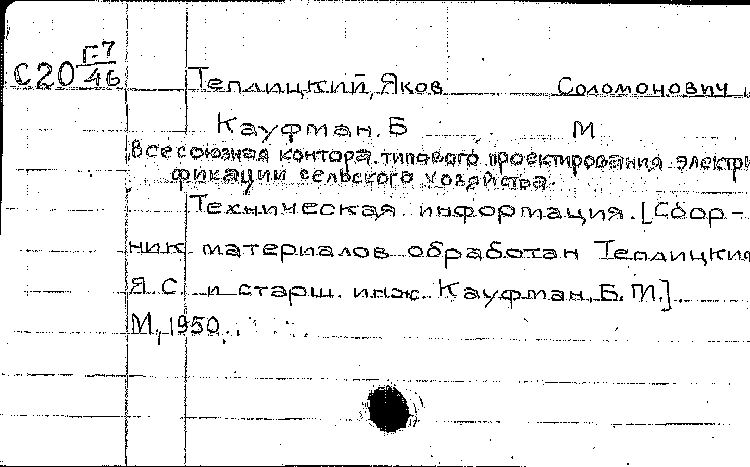 С20 Г-7/46
Теплицкий, Яков Соломонович и
Кауфман, Б М
Всесоюзная контора типового проектирования электри
фикации сельского хозяйства.
Техническая информация. [Сбор-
ник материалов обработан Теплицким
Я.С. и старш. инж. Кауфман, Б. М.].
М., 1950.